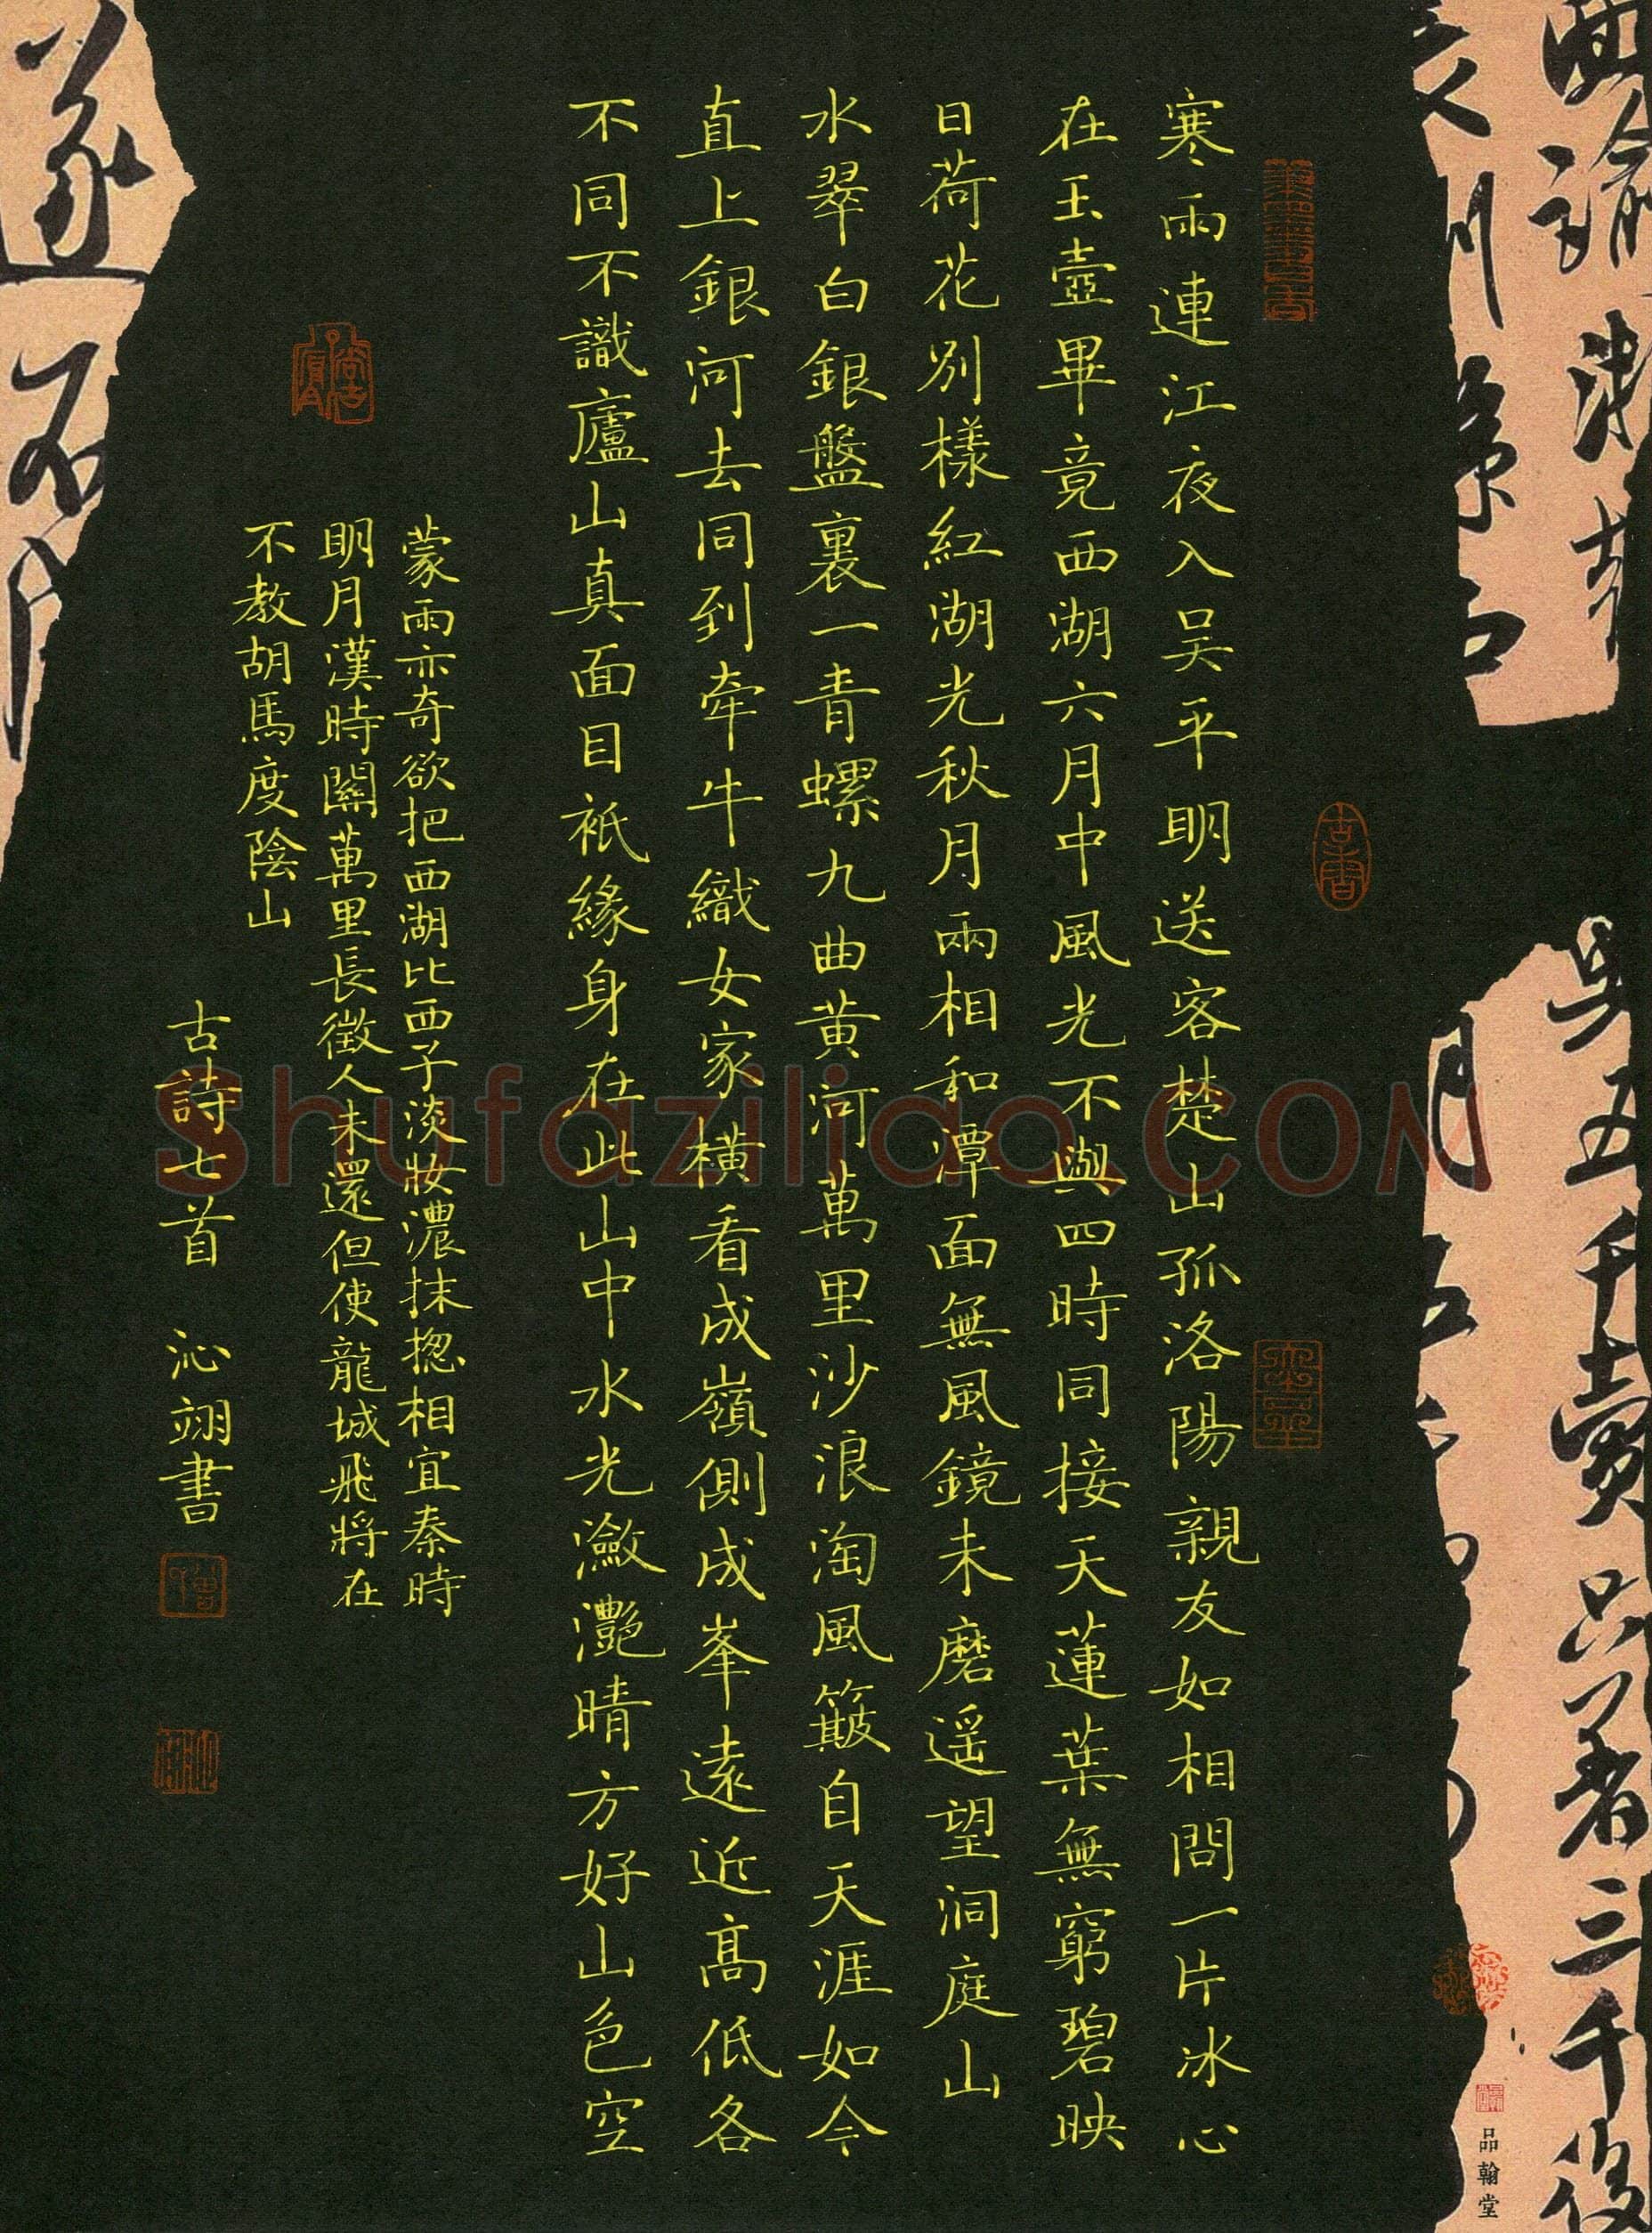 寒雨連江夜入吴平明送客楚山孤洛陽親友如相問一片冰心
在玉壺畢竟西湖六月中風光不與四時同接天蓮葉無窮碧映
日荷花別樣紅湖光秋月兩相和潭面無風鏡未磨遥望洞庭山
水翠白銀盤裏一青螺九曲黄河萬里沙浪淘風簸自天涯如今
直上銀河去同到牽牛織女家橫看成嶺側成峯遠近高低各
不同不識廬山真面目祇緣身在此山中水光瀲灩晴方好山色空
蒙雨亦奇欲把西湖比西子淡妝濃抹揔相宜秦時
明月漢時關萬里長徵人未還但使龍城飛將在
不教胡馬度陰山
古詩七首 沁翊書
品翰堂
吴五千賣只著三千後
遂
石
Shufaziliao.COM